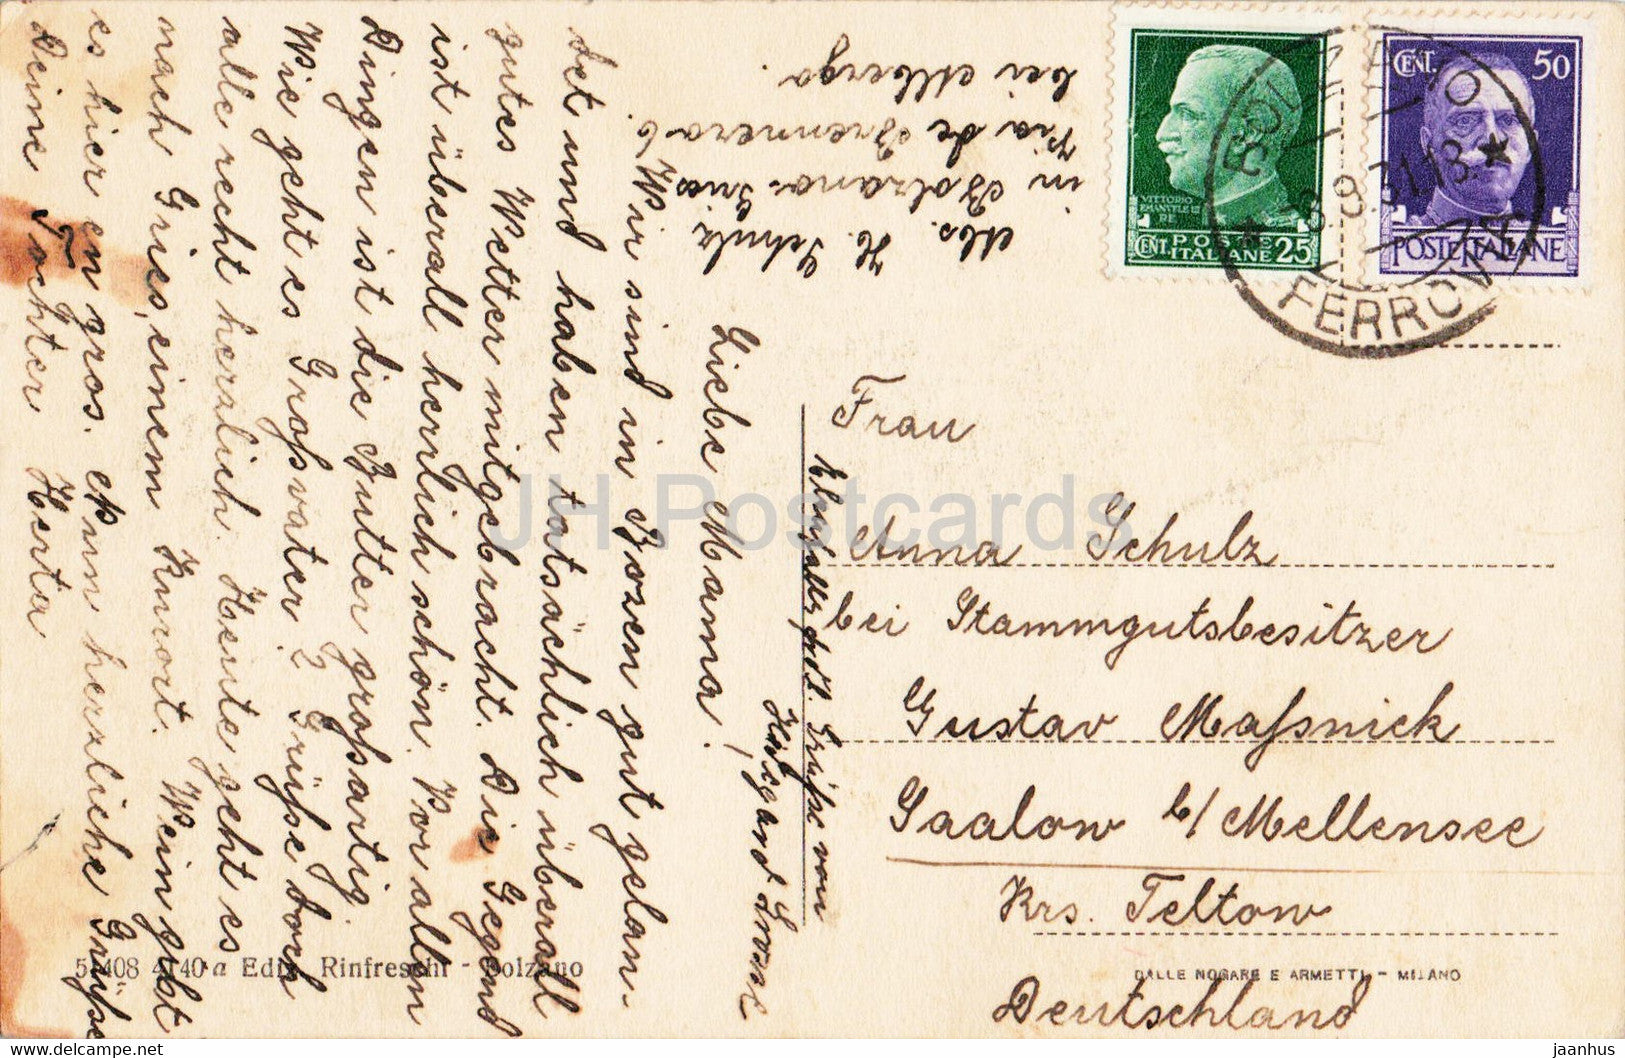 Abs. H. Schulz
in Bolzano-Gries
Via de Brennero 6.
bei Alberga.
Liebe Mama!
Wir sind in Bozen gut gelan-
det und haben tatsächlich überall
gutes Wetter mitgebracht. Die Gegend
ist überall herrlich schön. Vor allen
Dingen ist die Butter großartig.
Wie geht es Großvater? Grüße doch
alle recht herzlich. Heute geht es
nach Gries, einem Kurort. Wein gibt
es hier en gros. Nun herzliche Grüße
Deine Tochter Herta
Grüße von
CENT. 50
POSTE ITALIANE
VITTORIO
EMANUELE III
RE
POSTE
CENT. ITALIANE 25
BOLZANO
8.9.31.13
FERROVIA
Frau
Anna Schulz
bei Stammgutsbesitzer
Gustav Maßnick
Saalow b/ Mellensee
Krs. Teltow
Deutschland
51408 4140a Ediz. Rinfreschi - Bolzano
DALLE NOGARE E ARMETTI - MILANO
JH Postcards
jaanhus
https://www.delcampe.net